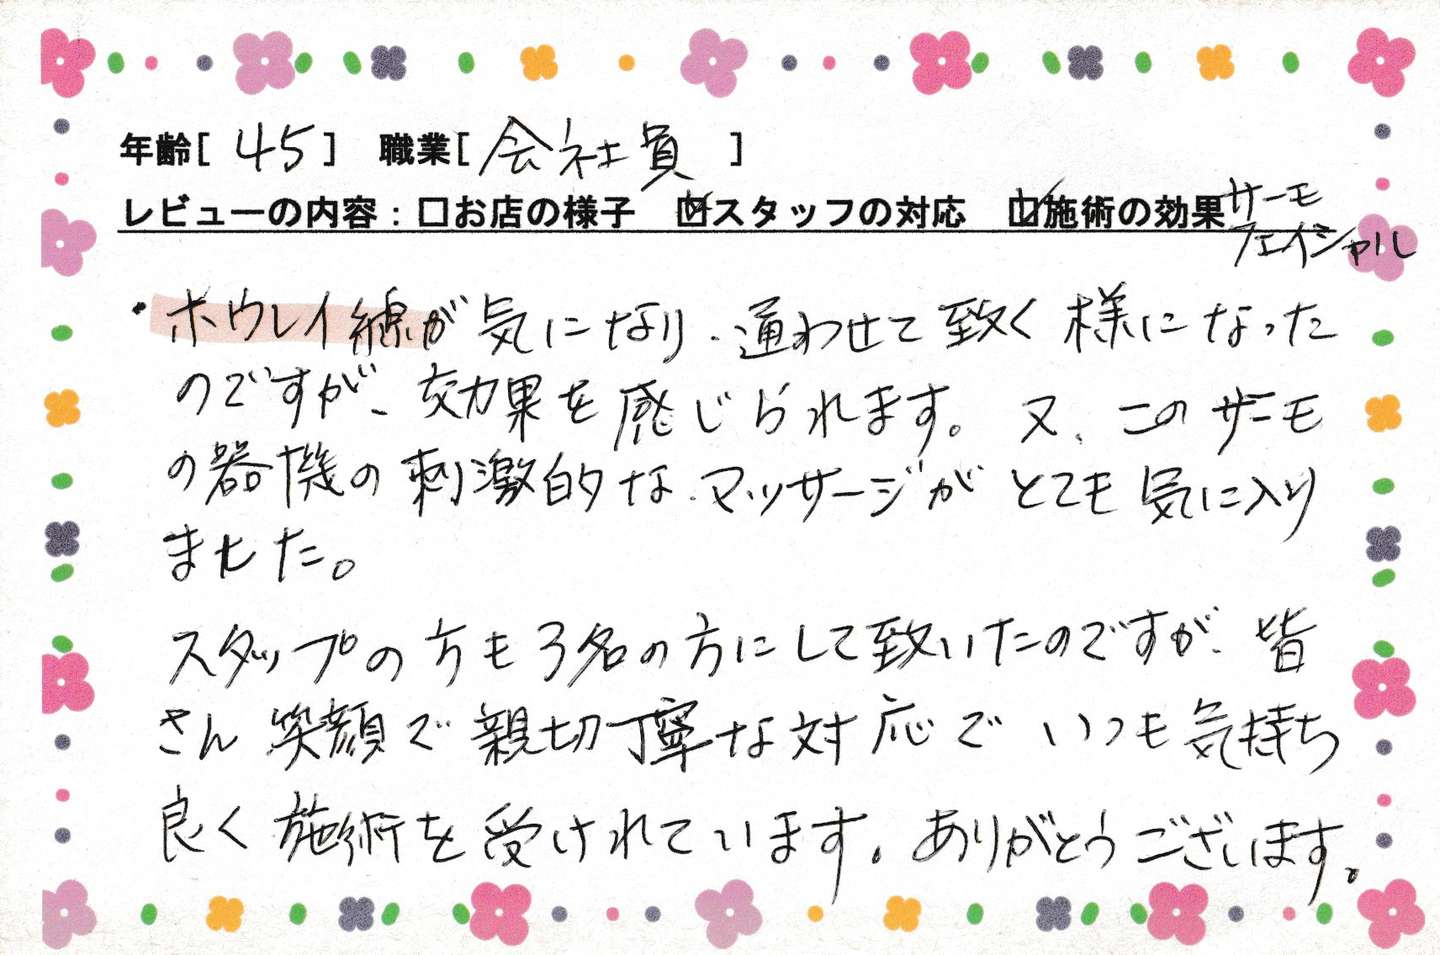 年齢[ 45 ] 職業[ 会社員 ]
レビューの内容：□お店の様子 ☑スタッフの対応 ☑施術の効果 サーモ
フェイシャル
・ホウレイ線が気になり、通わせて致く様になった
のですが、効果を感じられます。又、このサーモ
の器機の刺激的な、マッサージがとても気に入り
ました。
スタップの方も3名の方にして致いたのですが、皆
さん笑顔で親切丁寧な対応でいつも気持ち
良く施術を受けれています。ありがとうございます。